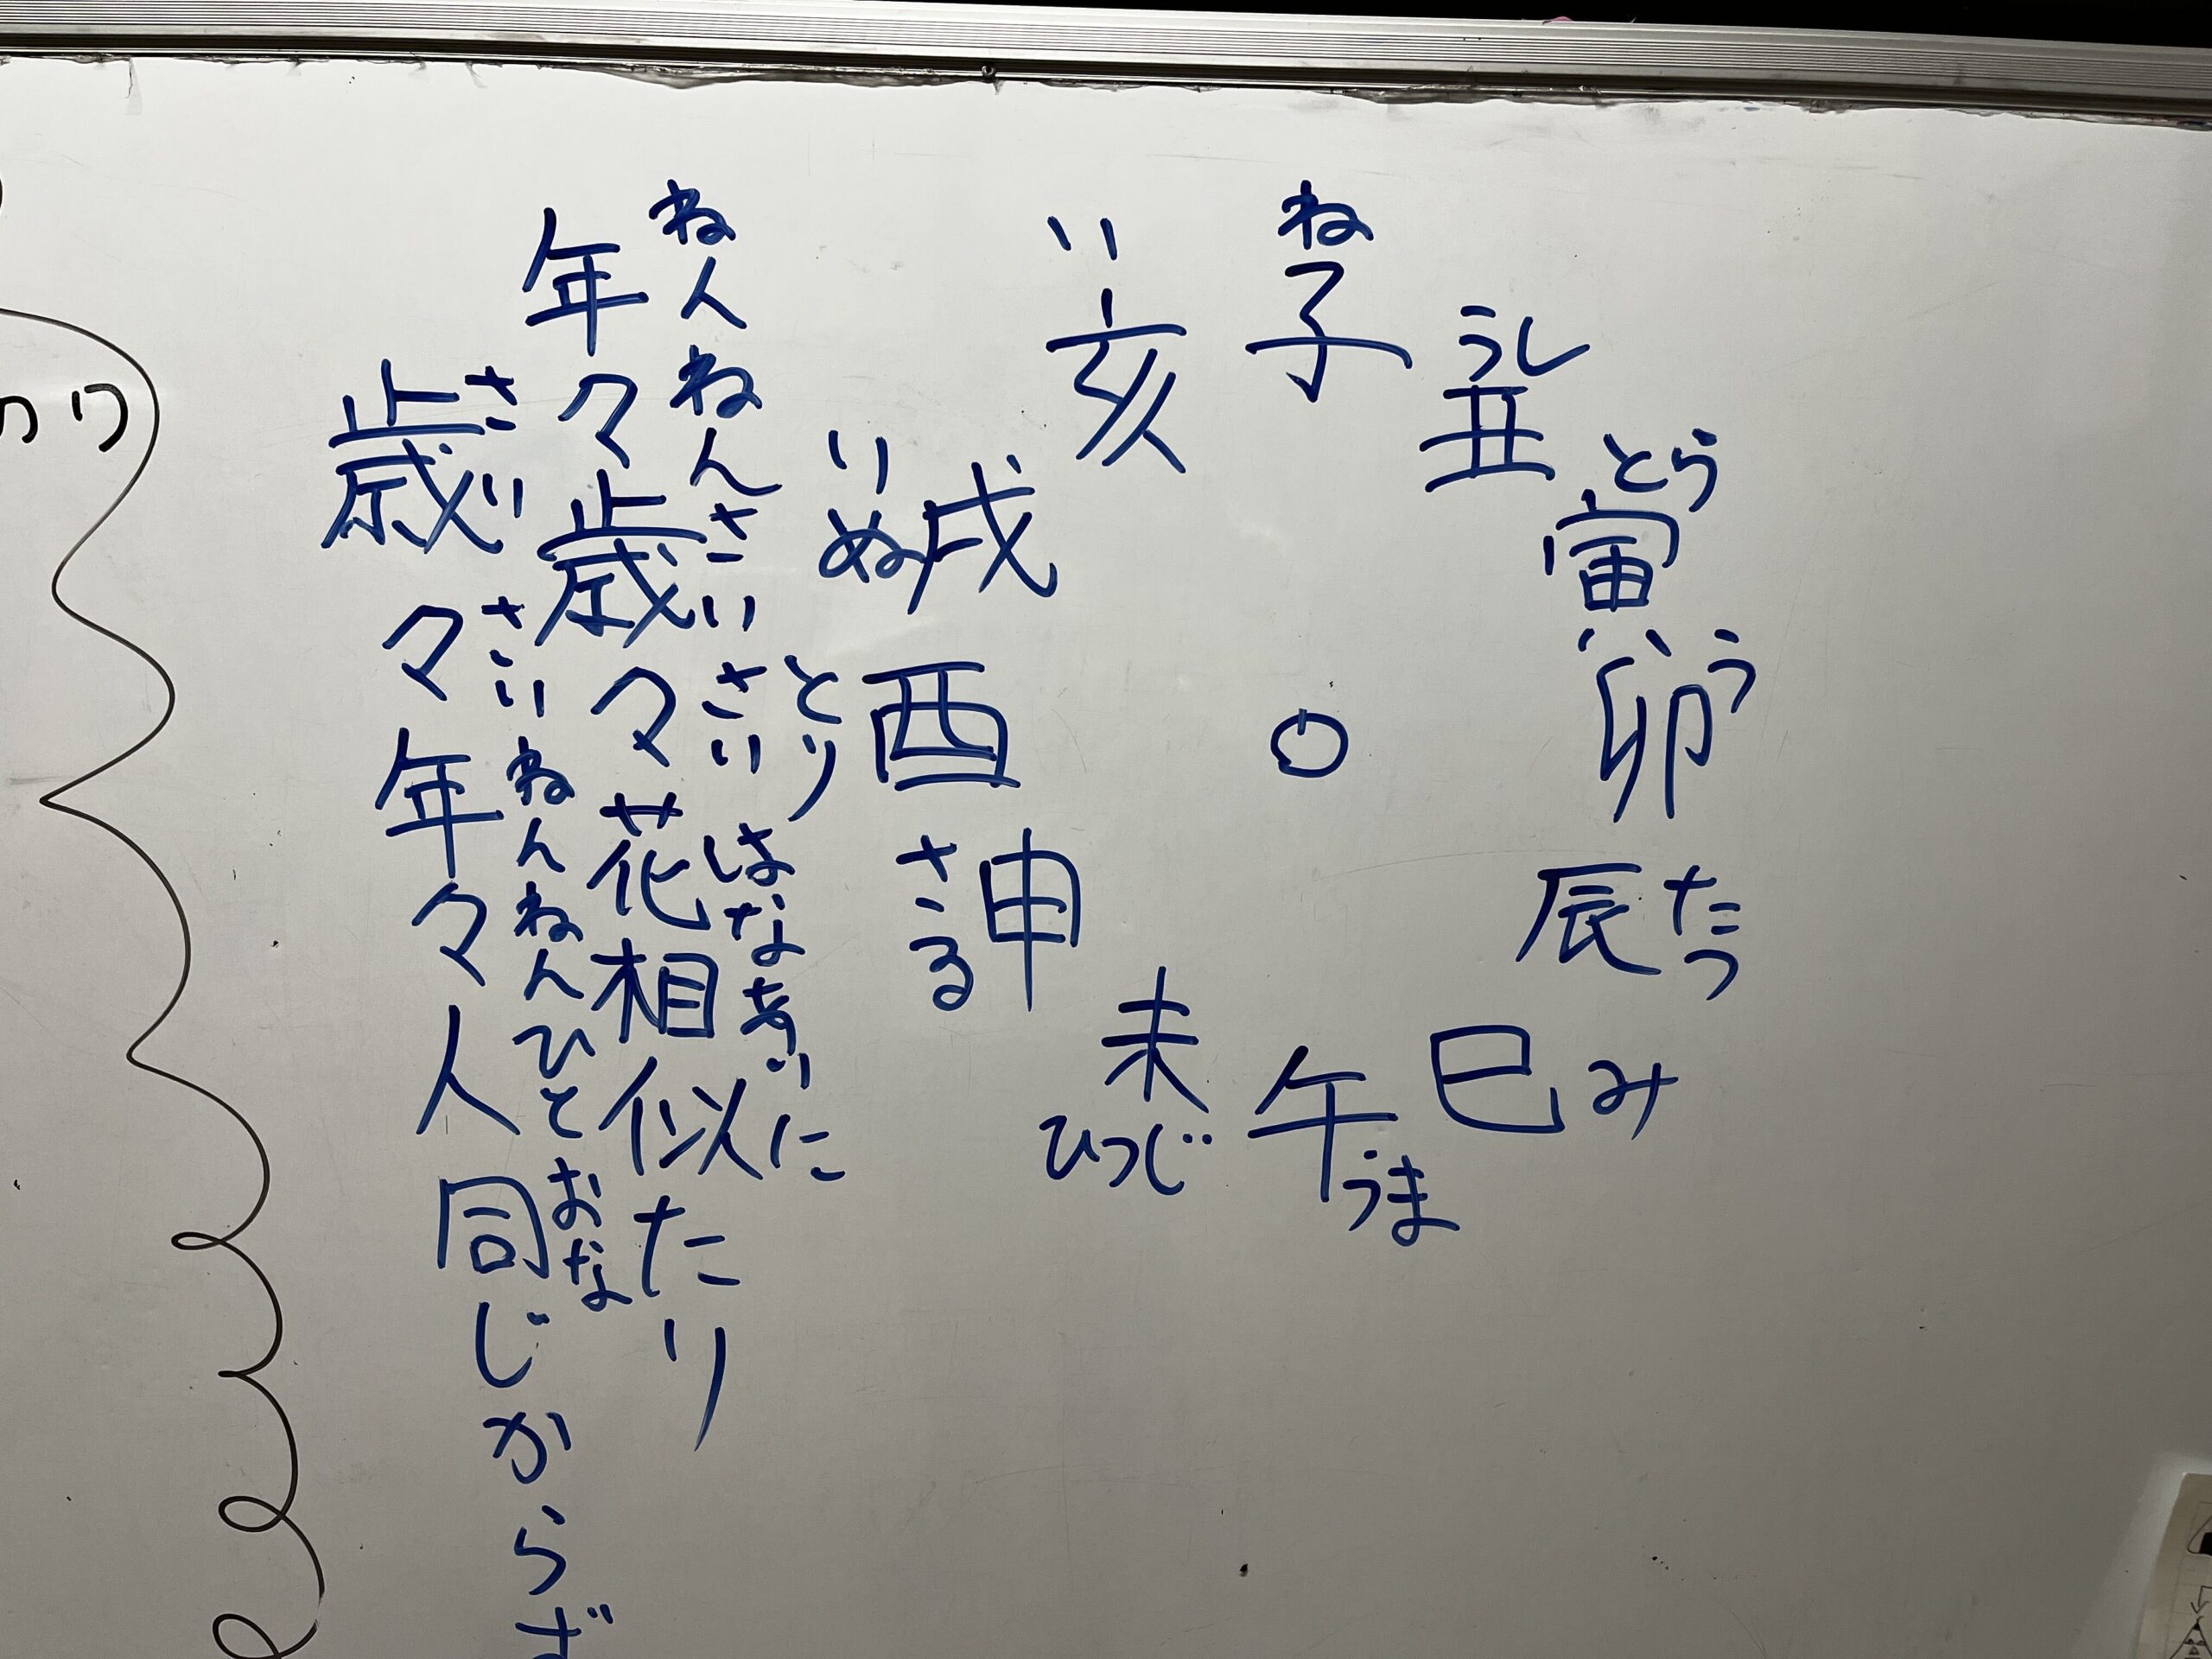 ね
子
うし
丑
とら
寅
う
卯
たつ
辰
み
巳
うま
午
ひつじ
未
さる
申
とり
酉
いぬ
戌
い
亥
ねんねんさいさいはなあいに
年々歳々花相似たり
さいさいねんねんひとおな
歳々年々人同じからず
り